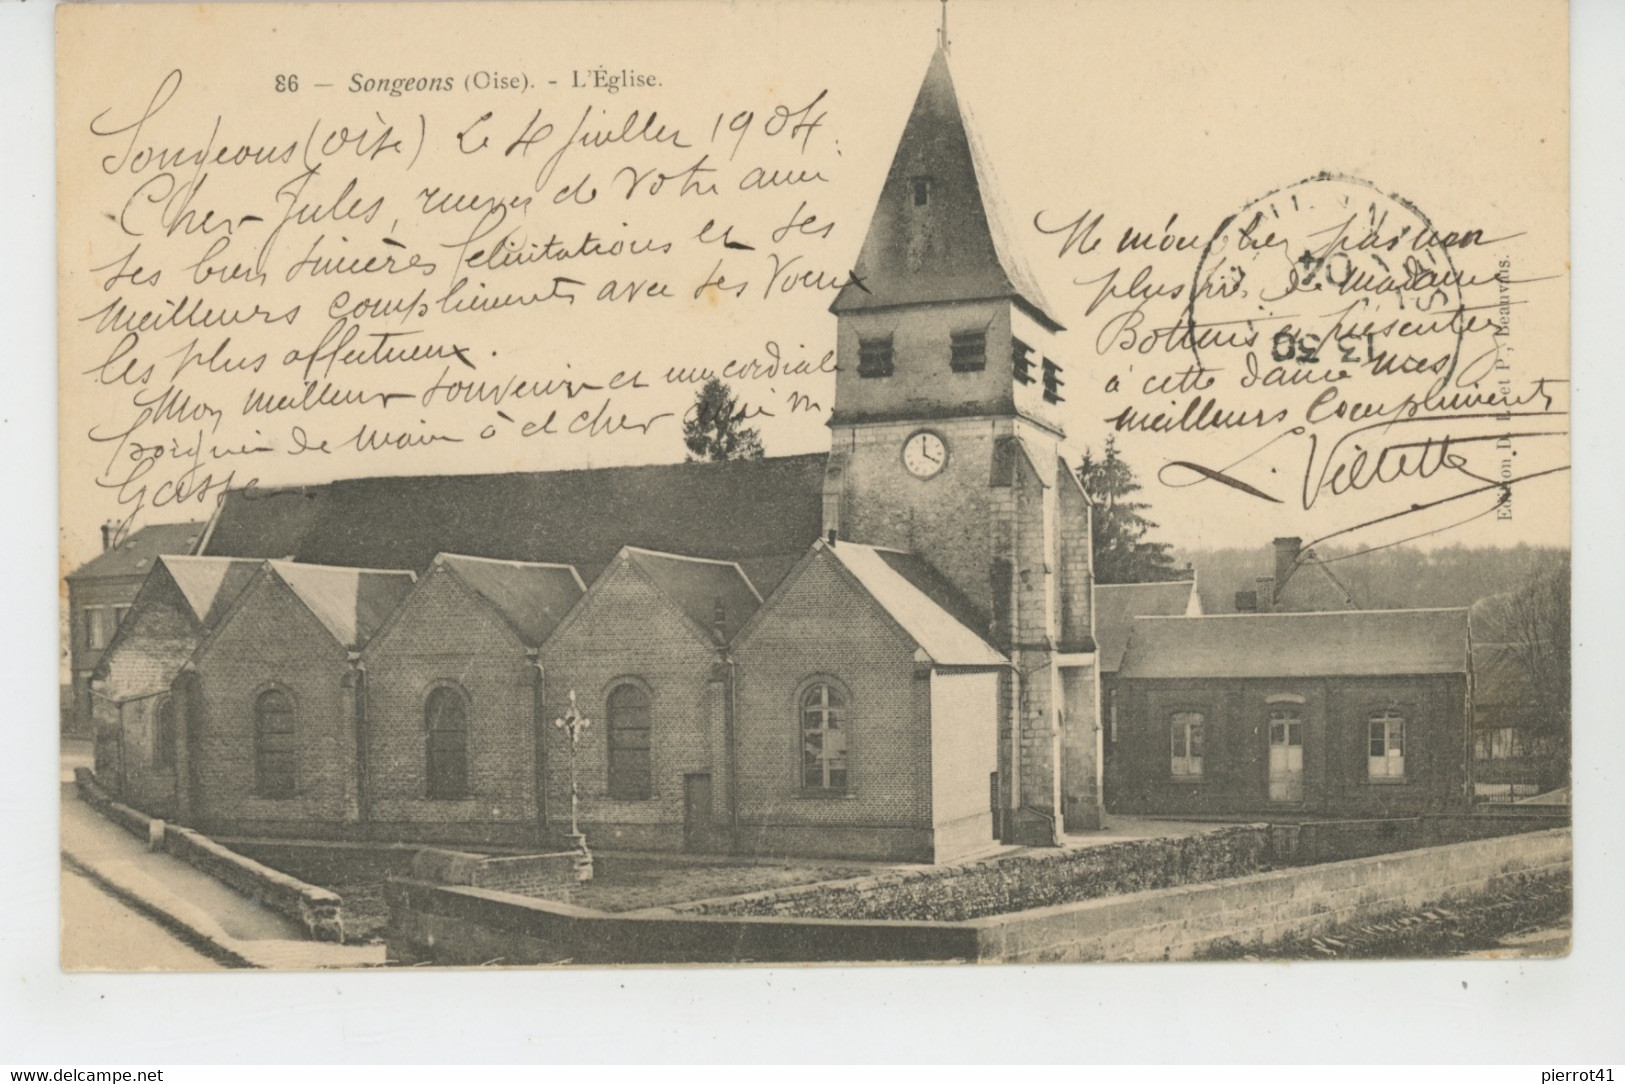 86 — Songeons (Oise). - L'Église.
Songeons (Oise) Le 4 Juillet 1904.
Cher Jules, recevez de votre ami
ses bien sincères félicitations et ses
meilleurs compliments avec ses voeux
les plus affectueux.
Mon meilleur souvenir et une cordiale
poignée de main à ce cher ami M.
Gasse
Ne m'oubliez pas non
plus près de Madame
et présentez
à cette dame mes
meilleurs Compliments
L. Villette
04
13 30
Edition D. L. et P., Beauvais.
www.delcampe.net
pierrot41